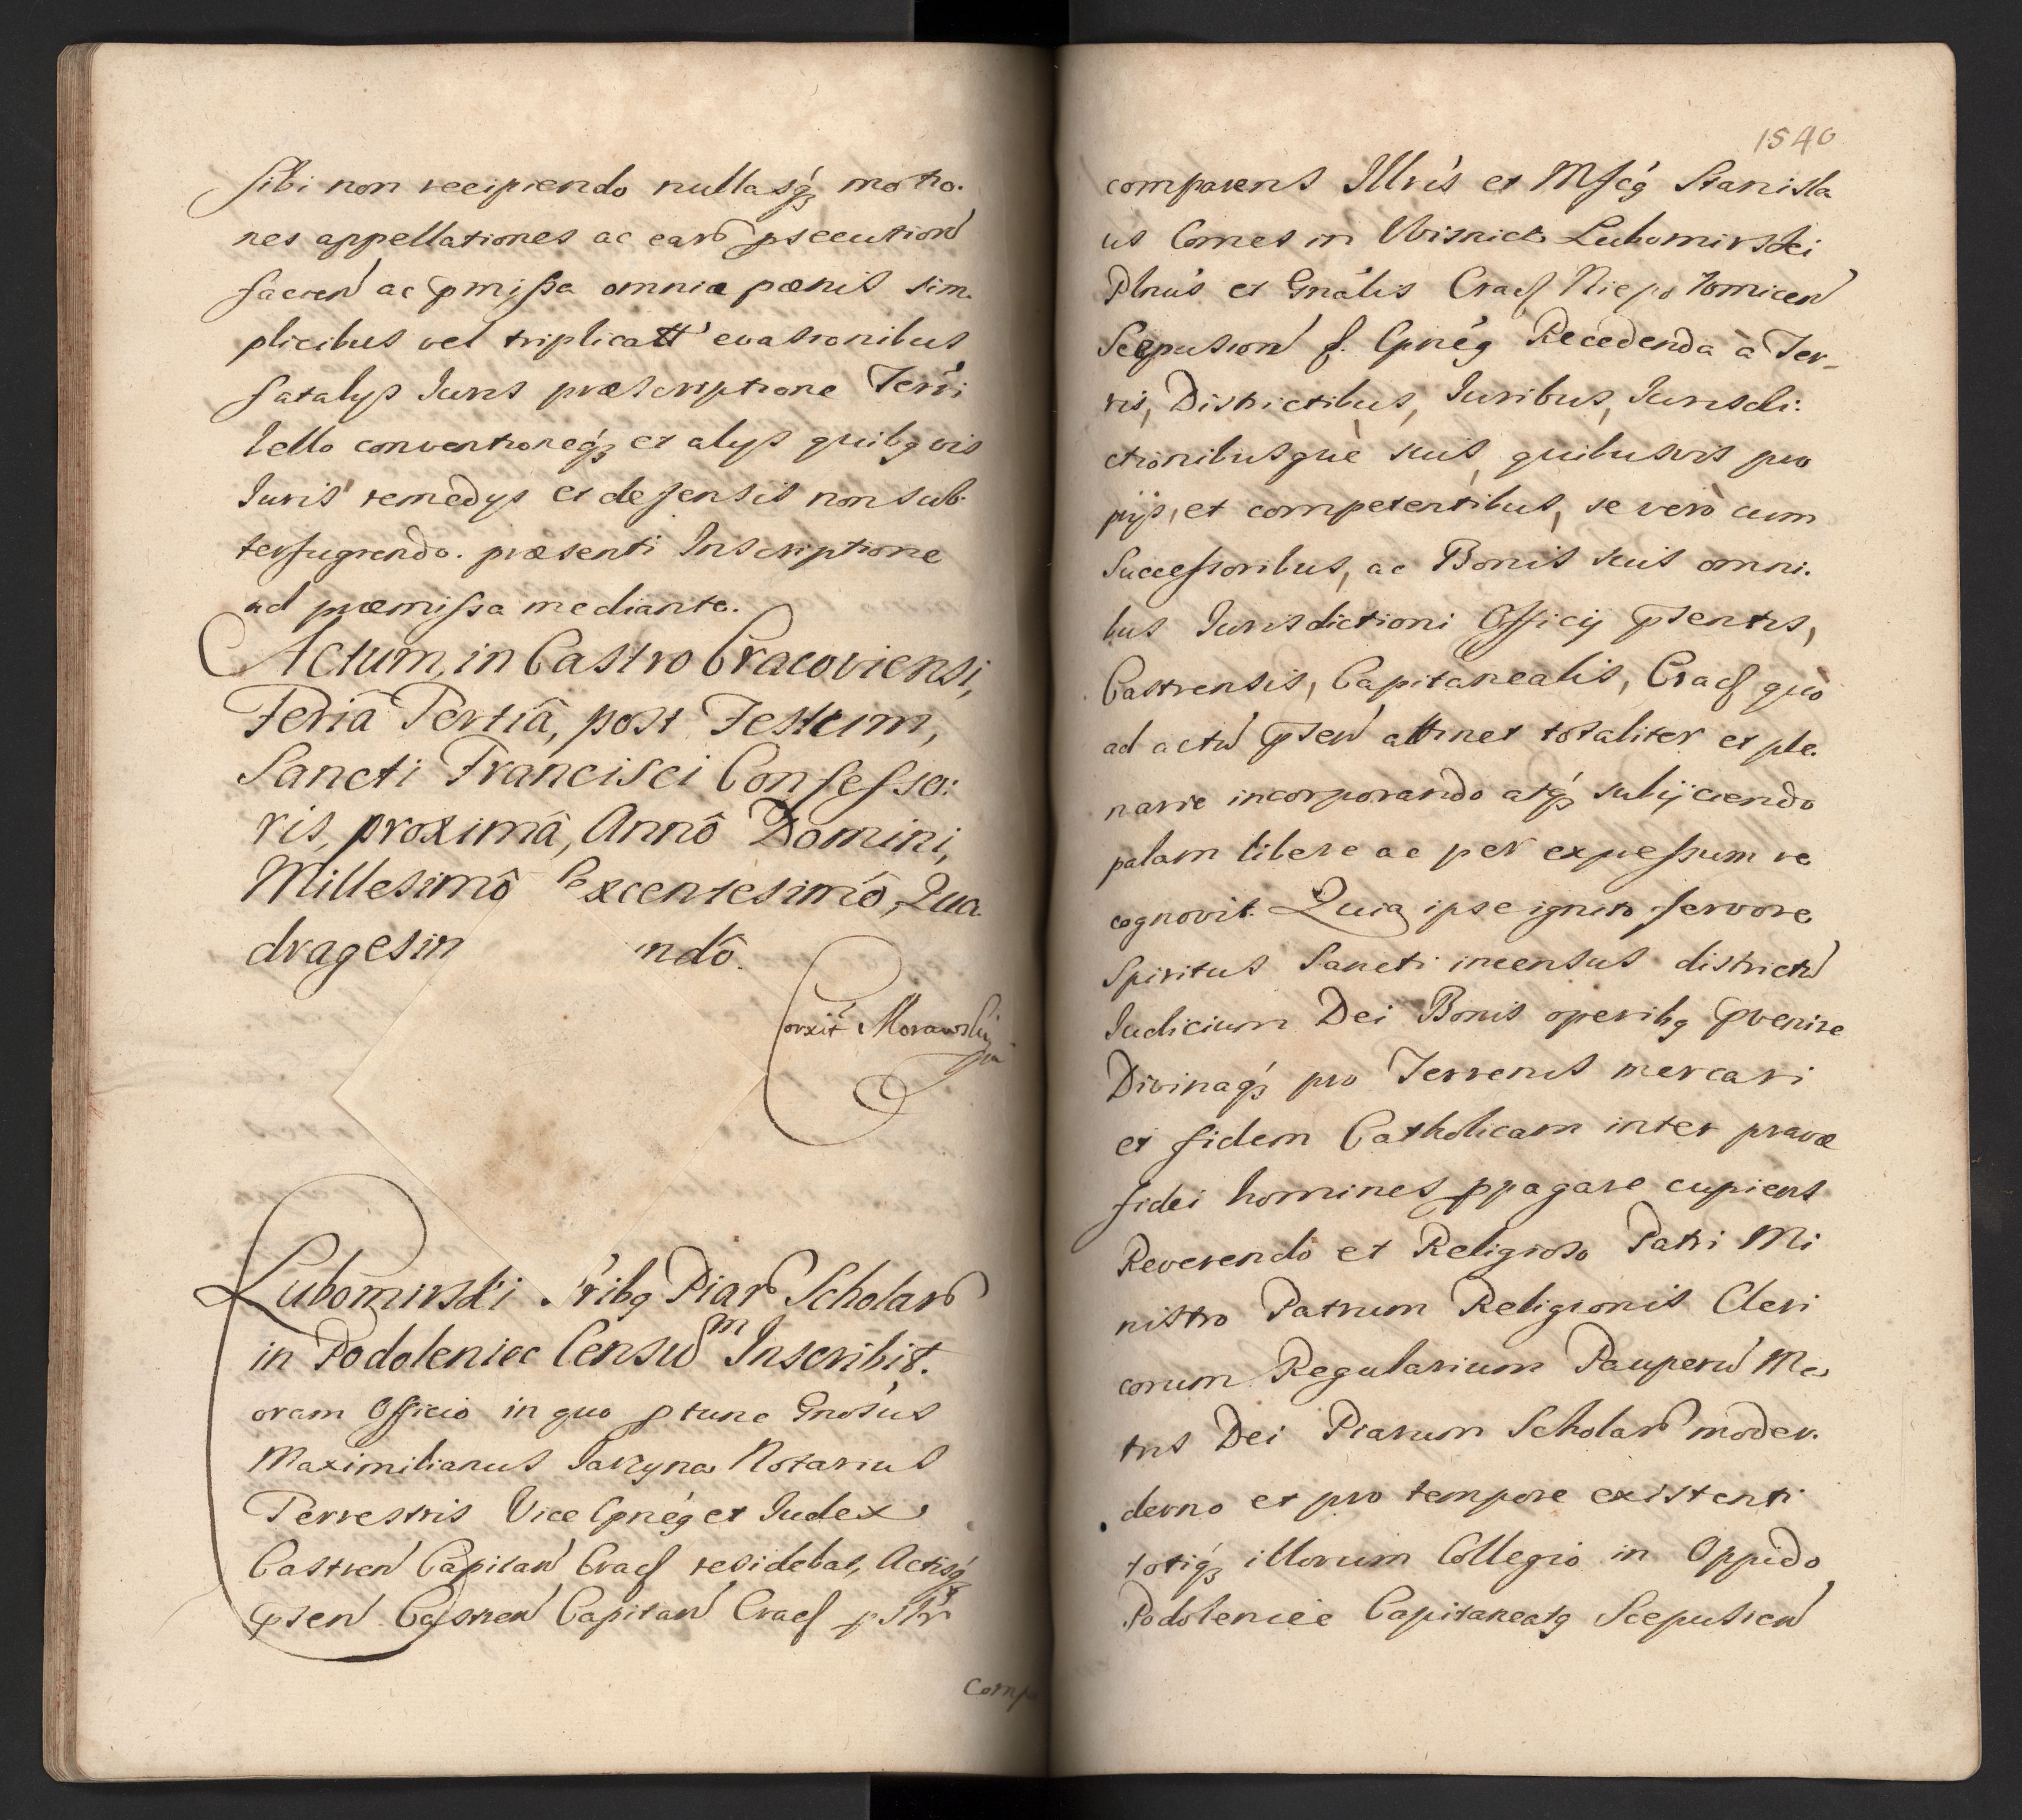 sibi non recipiendo nullasq́ꝫ motio.
nes appellationes ac earũ ꝓsecutionẽ
facien̄ ac p̄missa omnia pœnis sim
plicibus vel triplicatt evasionibus
fatalijs Juris præscriptione Terri
lello conventioneq́ꝫ et alijs quibqvis
Juris remedijs et defensis non sub
terfugiendo. præsenti Inscriptione
ad præmissa mediante.
Actum, in Castro Cracoviensi,
Feriâ Tertiâ, post Festum,
Sancti Francisci Confesso:
ris, proximâ, Annô Domini,
Millesimô Sexcentesimô, Qua
dragesim ndô.
Corxit Morawski
Lubomirski Fribq Piarũ Scholarũ
in Podoleniec Censũm Inscribit.
oram Officio in quo p tunc Gnosus
Maximilianus Jarzyna Notarius
Terrestris Vice Gpnég et Judex
Castren̄ Capitan̄ Cracƒ residebat, Actisq́ꝫ
p̄sen̄ Castren̄ Capitan̄ Cracƒ pslr
Comp
1540
comparens Illris et Mfcq́ Stanisla
us Comes in Wisnicz Lubomirski
Plnus et Gnalis Cracƒ Niepolomicen̄
Scepusien̄ &. Gpnég Recedenda à Ter_
ris, Districtibus, Juribus, Jurisdi:
ctionibusque suis quibusvis pro
prijs, et competentibus, se verò cum
Successoribus, ac Bonis suis omni.
bus Jurisdictioni Officij p̄sentis,
Castrensis, Capitanealis, Cracƒ quò
ad actũ p̄sen̄ attinet totaliter et ple.
narie incorporando atq́ꝫ subijciendo
palam libere ac per expressum re
cognovit. Quia ipse ignito fervore
Spiritus Sancti incensus districtũ
Judicium Dei Bonis operibq p̄venire
Divinaq́ꝫ pro Terrenis mercari
et fidem Catholicam inter pravæ
fidei homines ꝓpagare cupiens
Reverendo et Religioso Patri Mi
nistro Patrum Religionis Cleri
corum Regularium Pauperũ Ma
tris Dei Piarum Scholarũ moder.
derno et pro tempore existenti
totiq́ꝫ illorum Collegio in Oppido
Podoleniec Capitaneatq Scepusien̄